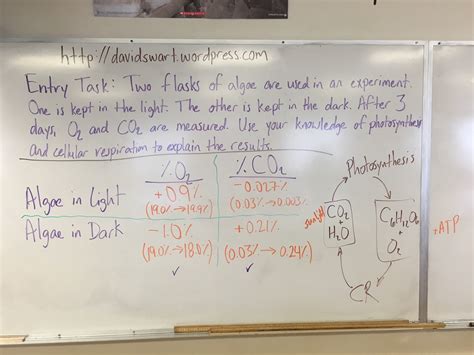 http://davidswart.wordpress.com
Entry Task: Two flasks of algae are used in an experiment.
One is kept in the light. The other is kept in the dark. After 3
days, O₂ and CO₂ are measured. Use your knowledge of photosynthesis
and cellular respiration to explain the results.
% O₂ % CO₂
Algae in Light +0.9% -0.027%
(19.0%→19.9%) (0.03%→0.003%)
Algae in Dark -1.0% +0.21%
(19.0%→18.0%) (0.03%→0.24%)
✓ ✓
Photosynthesis
sunlight
CO₂
+
H₂O
C₆H₁₂O₆
+
O₂
+ATP
CR